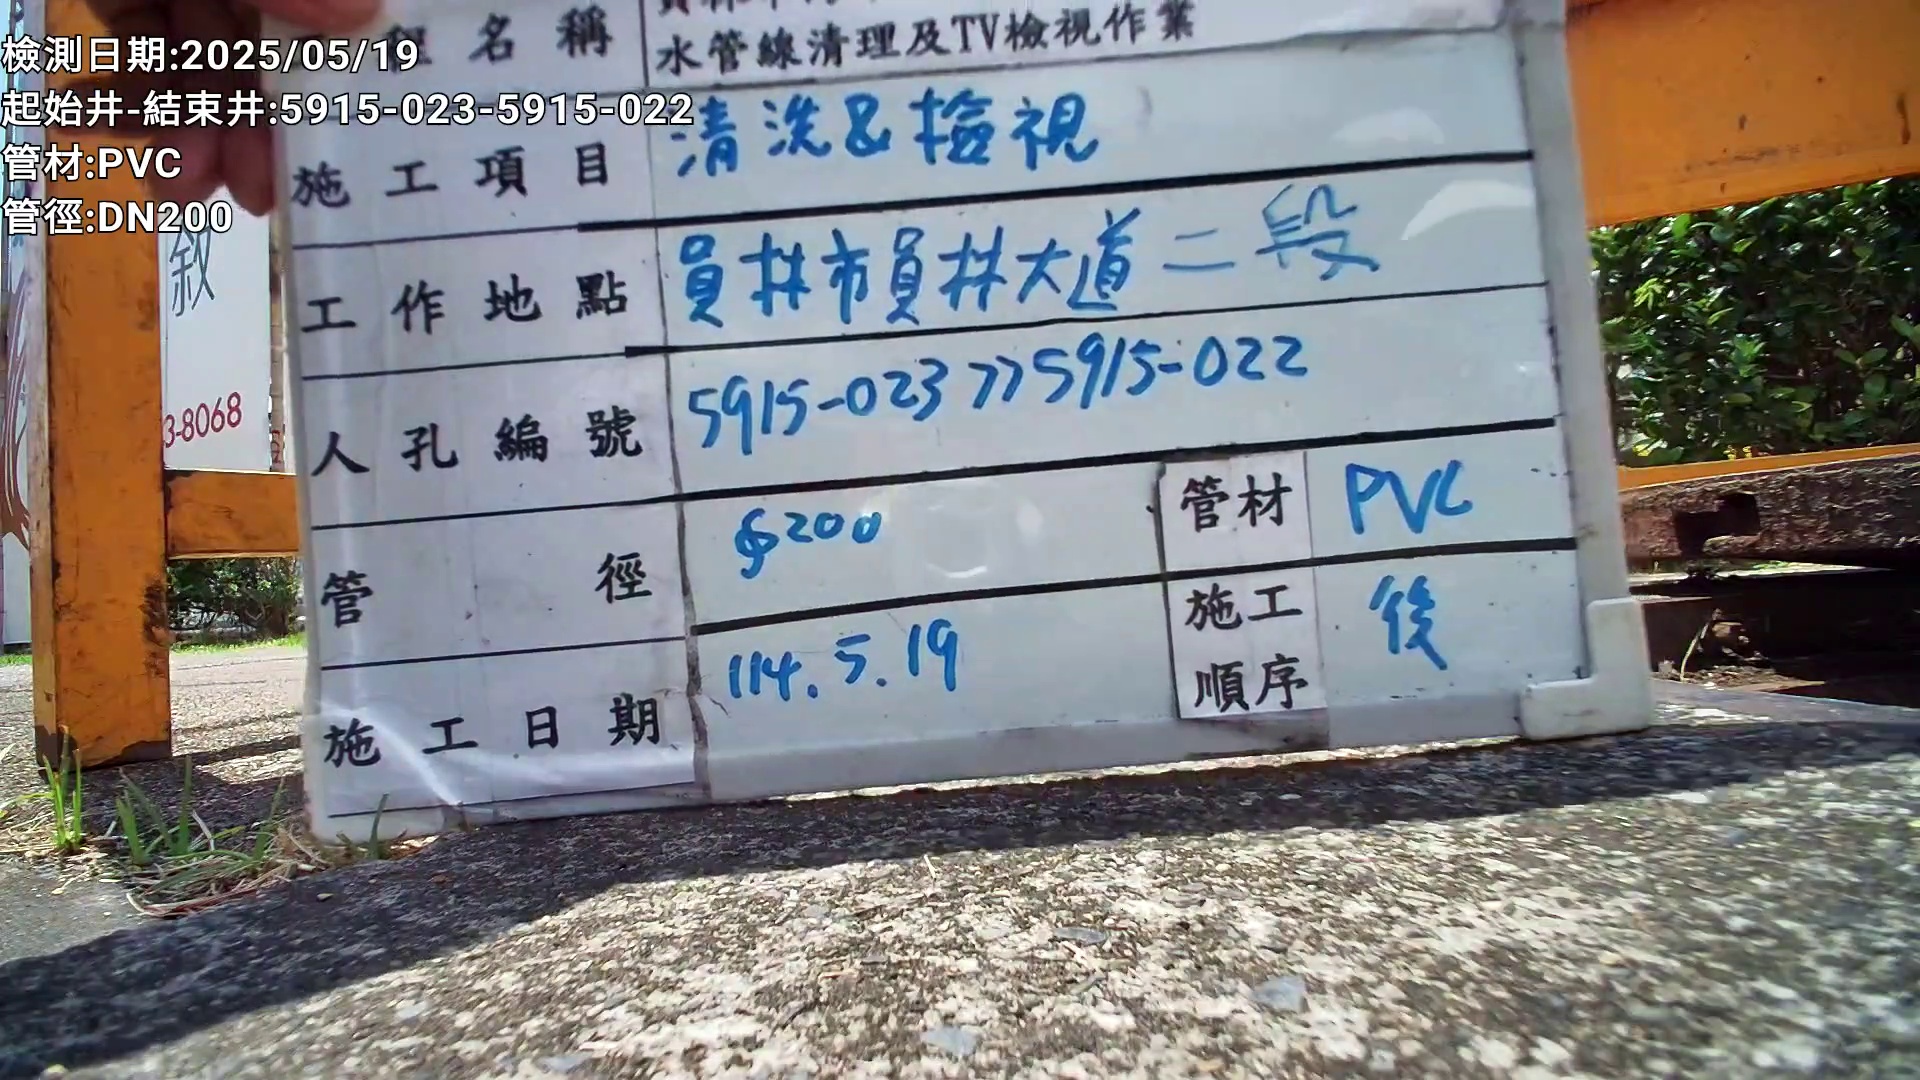 檢測日期:2025/05/19
起始井-結束井:5915-023-5915-022
管材:PVC
管徑:DN200
程名稱
水管線清理及TV檢視作業
施工項目 清洗&檢視
工作地點 員林市員林大道二段
人孔編號 5915-023>>5915-022
管徑 ∮200 管材 PVC
施工日期 114.5.19 施工順序 後
敘
3-8068